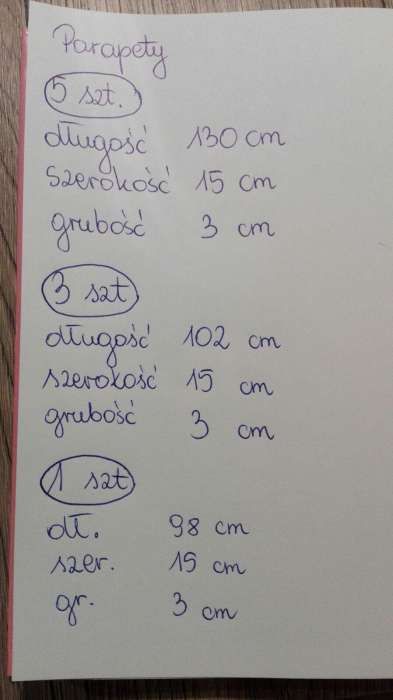 Parapety
5 szt.
długość 130 cm
Szerokość 15 cm
grubość 3 cm
3 szt
długość 102 cm
szerokość 15 cm
grubość 3 cm
1 szt
dł. 98 cm
szer. 15 cm
gr. 3 cm